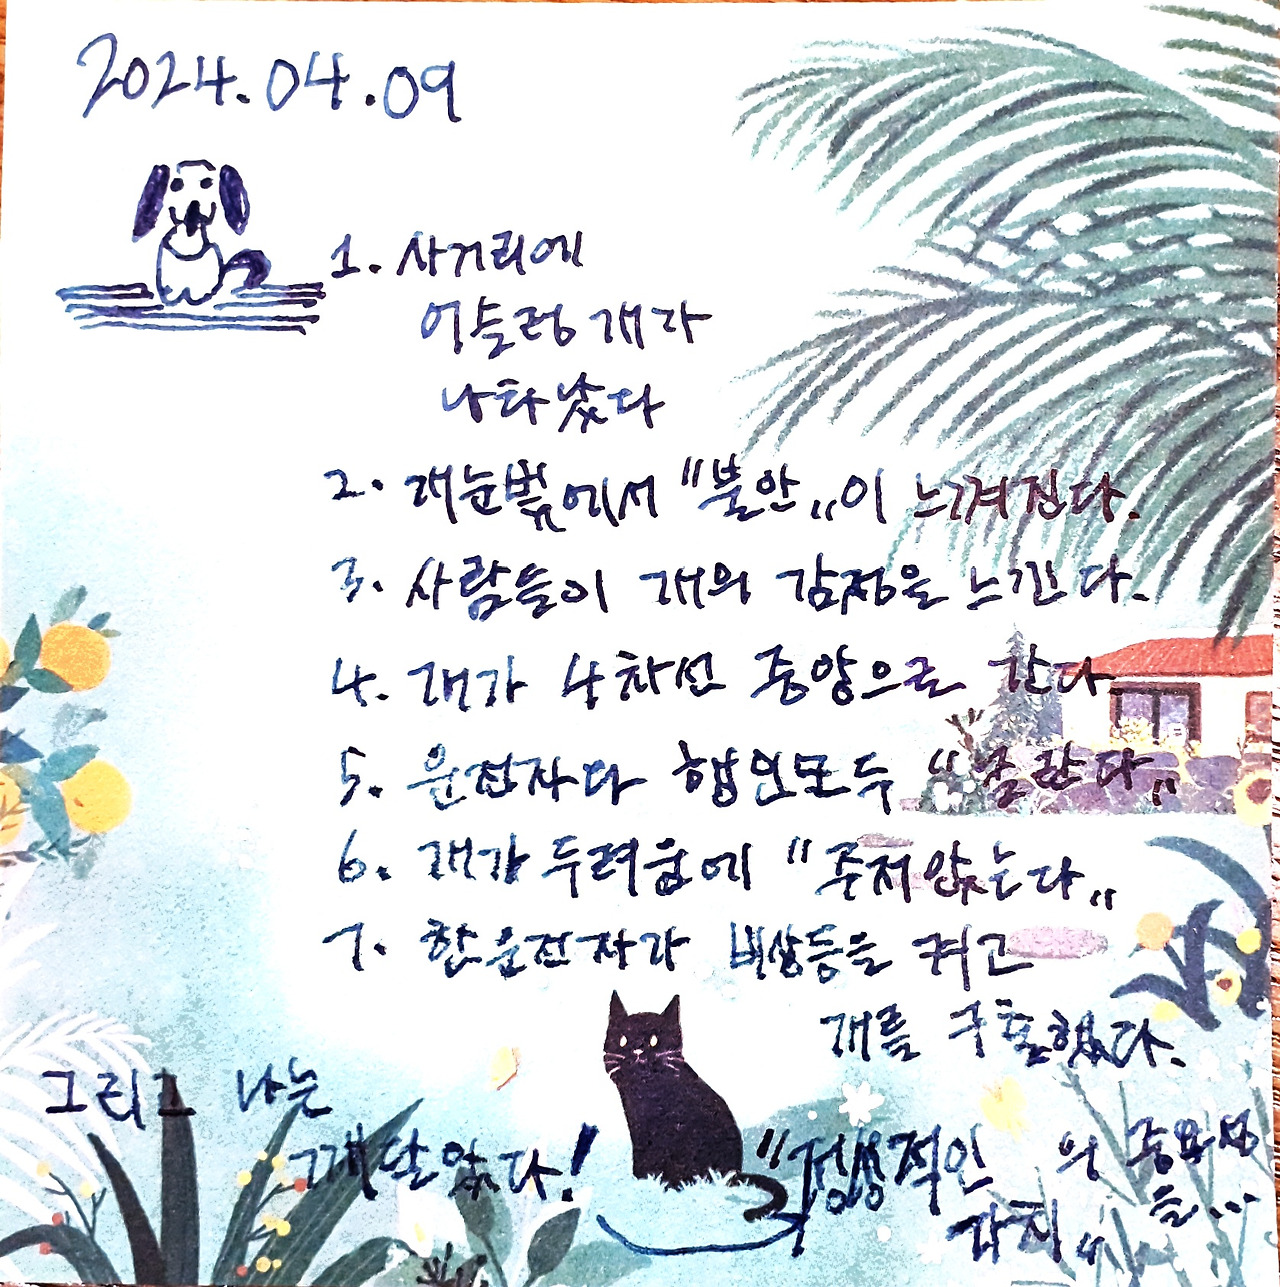 2024.04.09
1. 사거리에
어슬렁 개가
나타났다
2. 개눈빛에서 "불안"이 느껴진다.
3. 사람들이 개의 감정을 느낀다.
4. 개가 4차선 중앙으로 간다.
5. 운전자다 행인모두 "놀란다"
6. 개가 두려움에 "주저앉는다"
7. 한운전자가 비상등을 켜고
개를 구출했다.
그리고 나는
깨달았다! "정성적인 의 중요성
가치" 을...